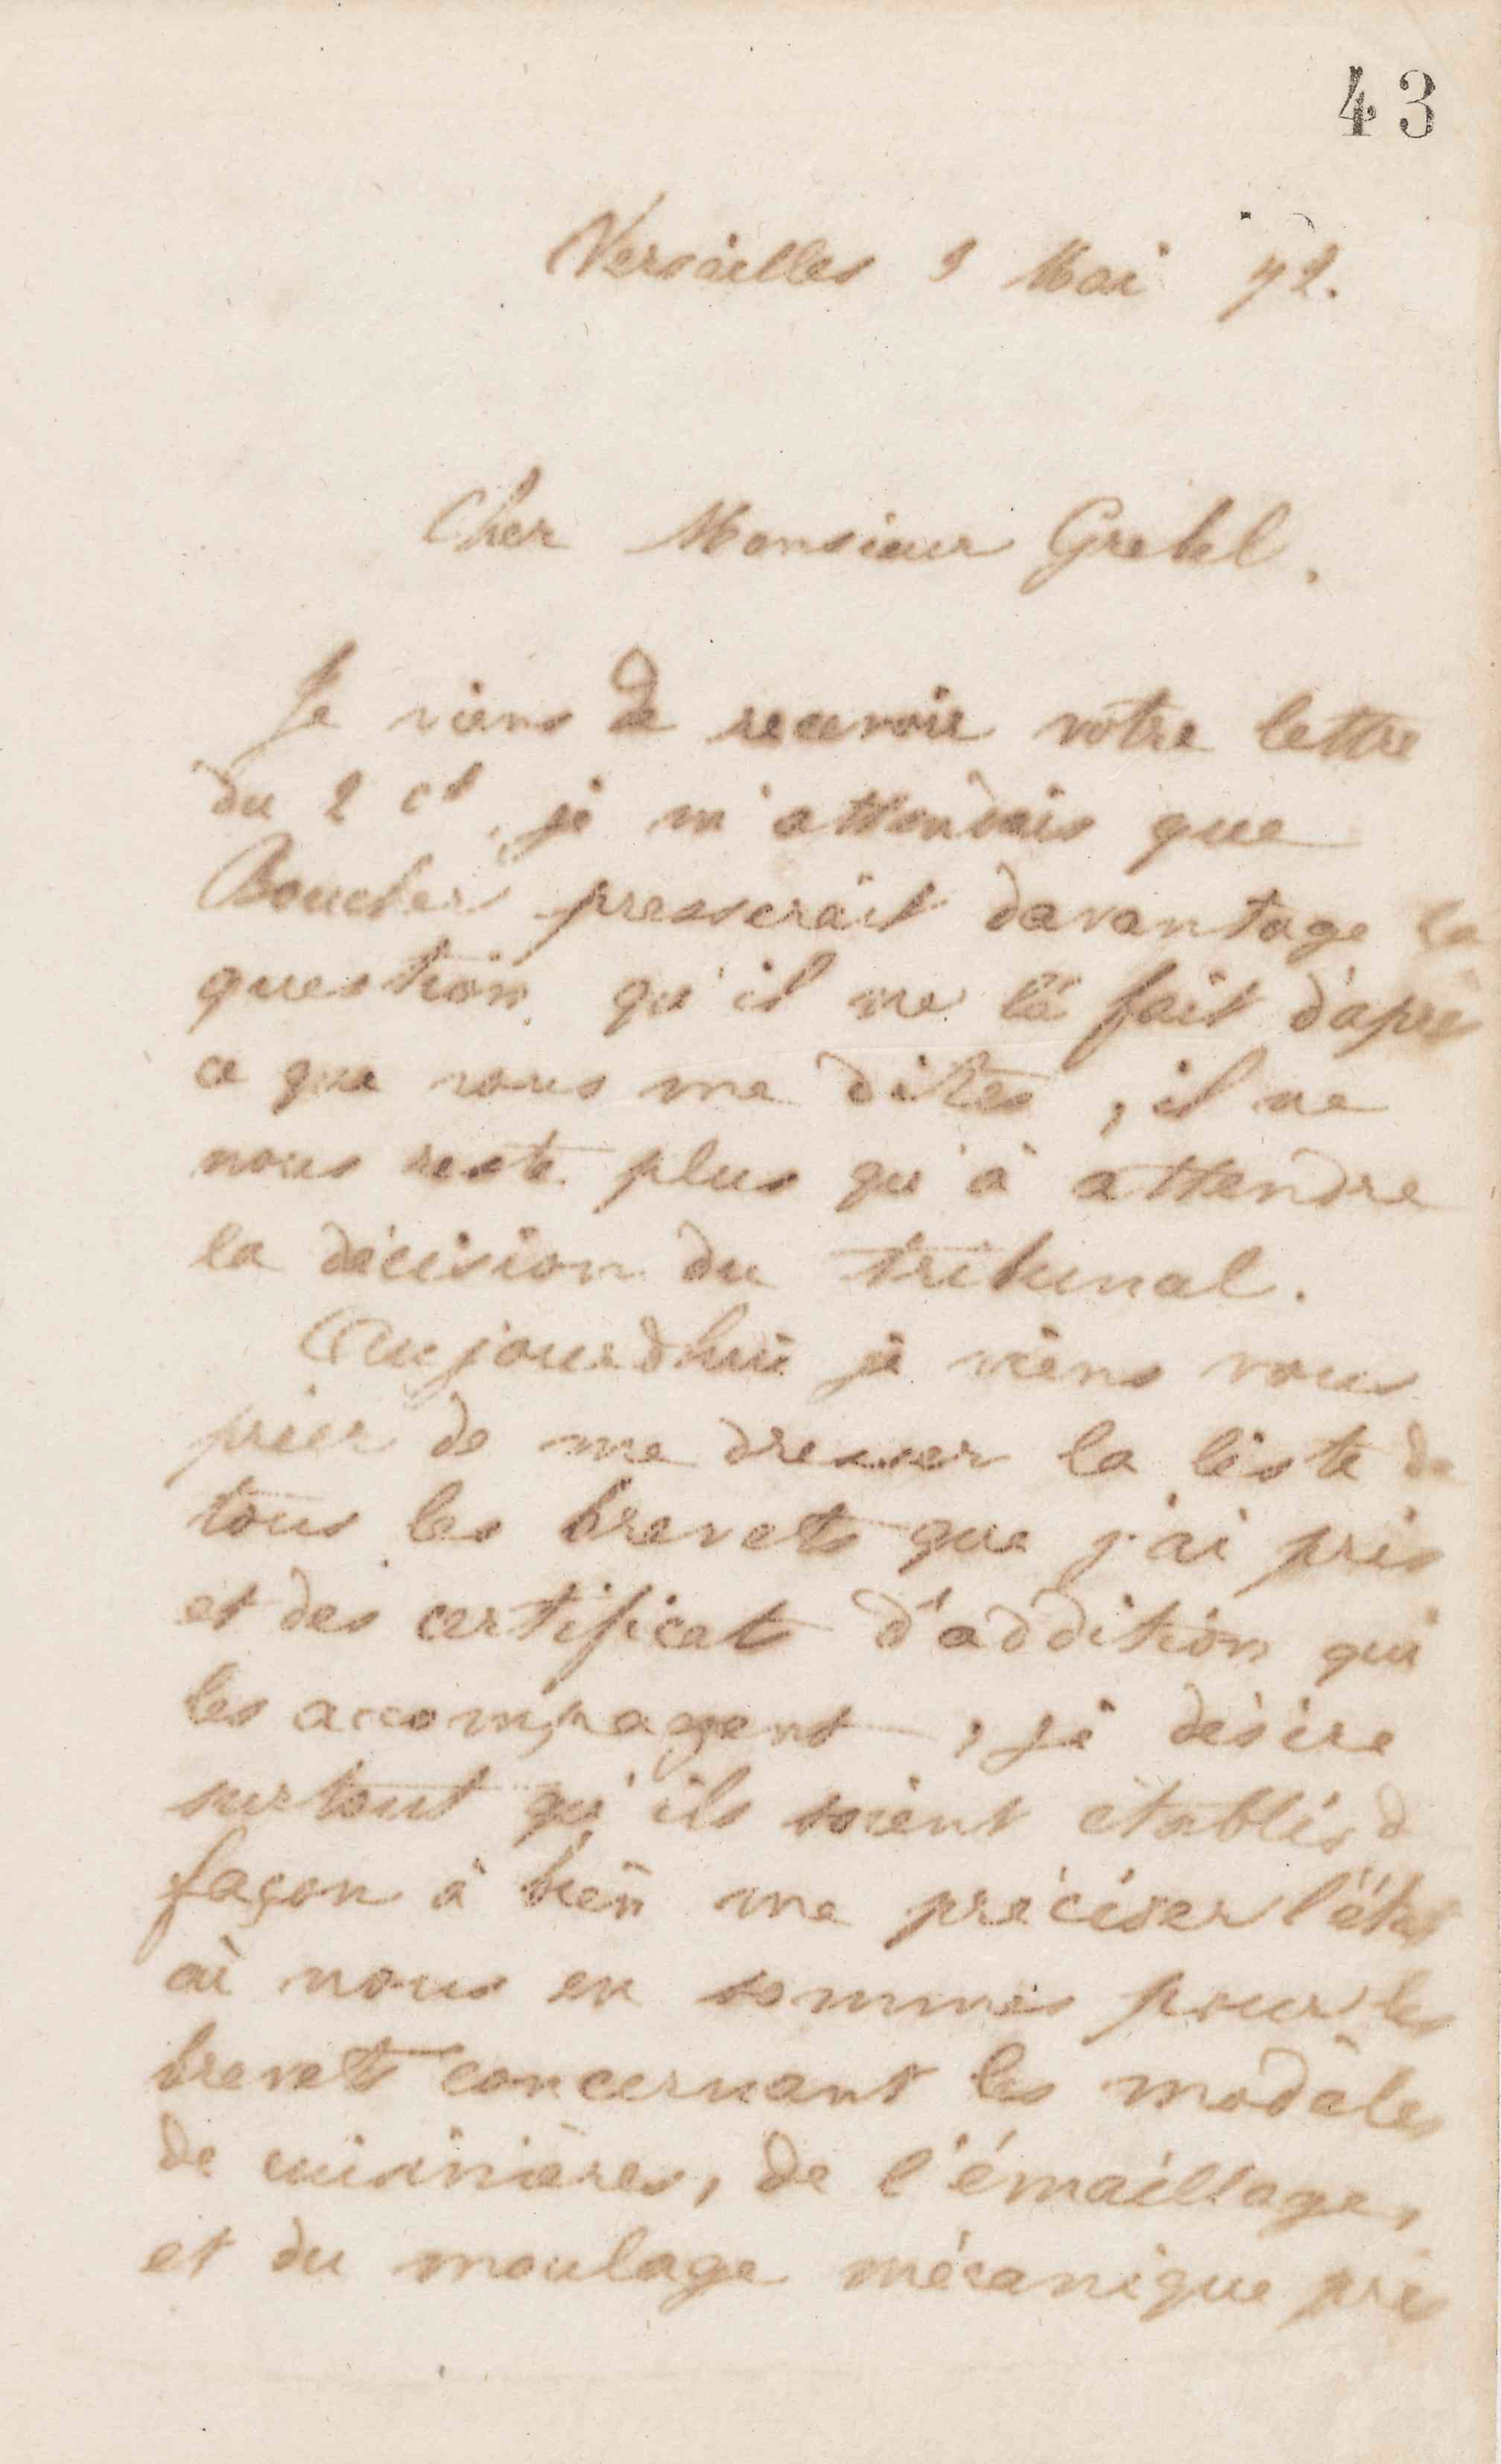 43
Versailles 3 Mai 72.
Cher Monsieur Grebel.
Je viens de recevoir votre lettre
du 2 ct, je m'attendais que
Boucher presserait davantage la
question qu'il ne le fait d'après
ce que vous me dites, il ne
nous reste plus qu'à attendre
la décision du tribunal.
Aujourdhui je viens vous
prier de me dresser la liste de
tous les brevets que j'ai pris
et des certificats d'addition qui
les accompagent, je désire
surtout qu'ils soient établis d
façon à bien me préciser l'état
où nous en sommes pour les
brevets concernant les modèles
de cuisinières, de l'émaillage,
et du moulage mécanique pris